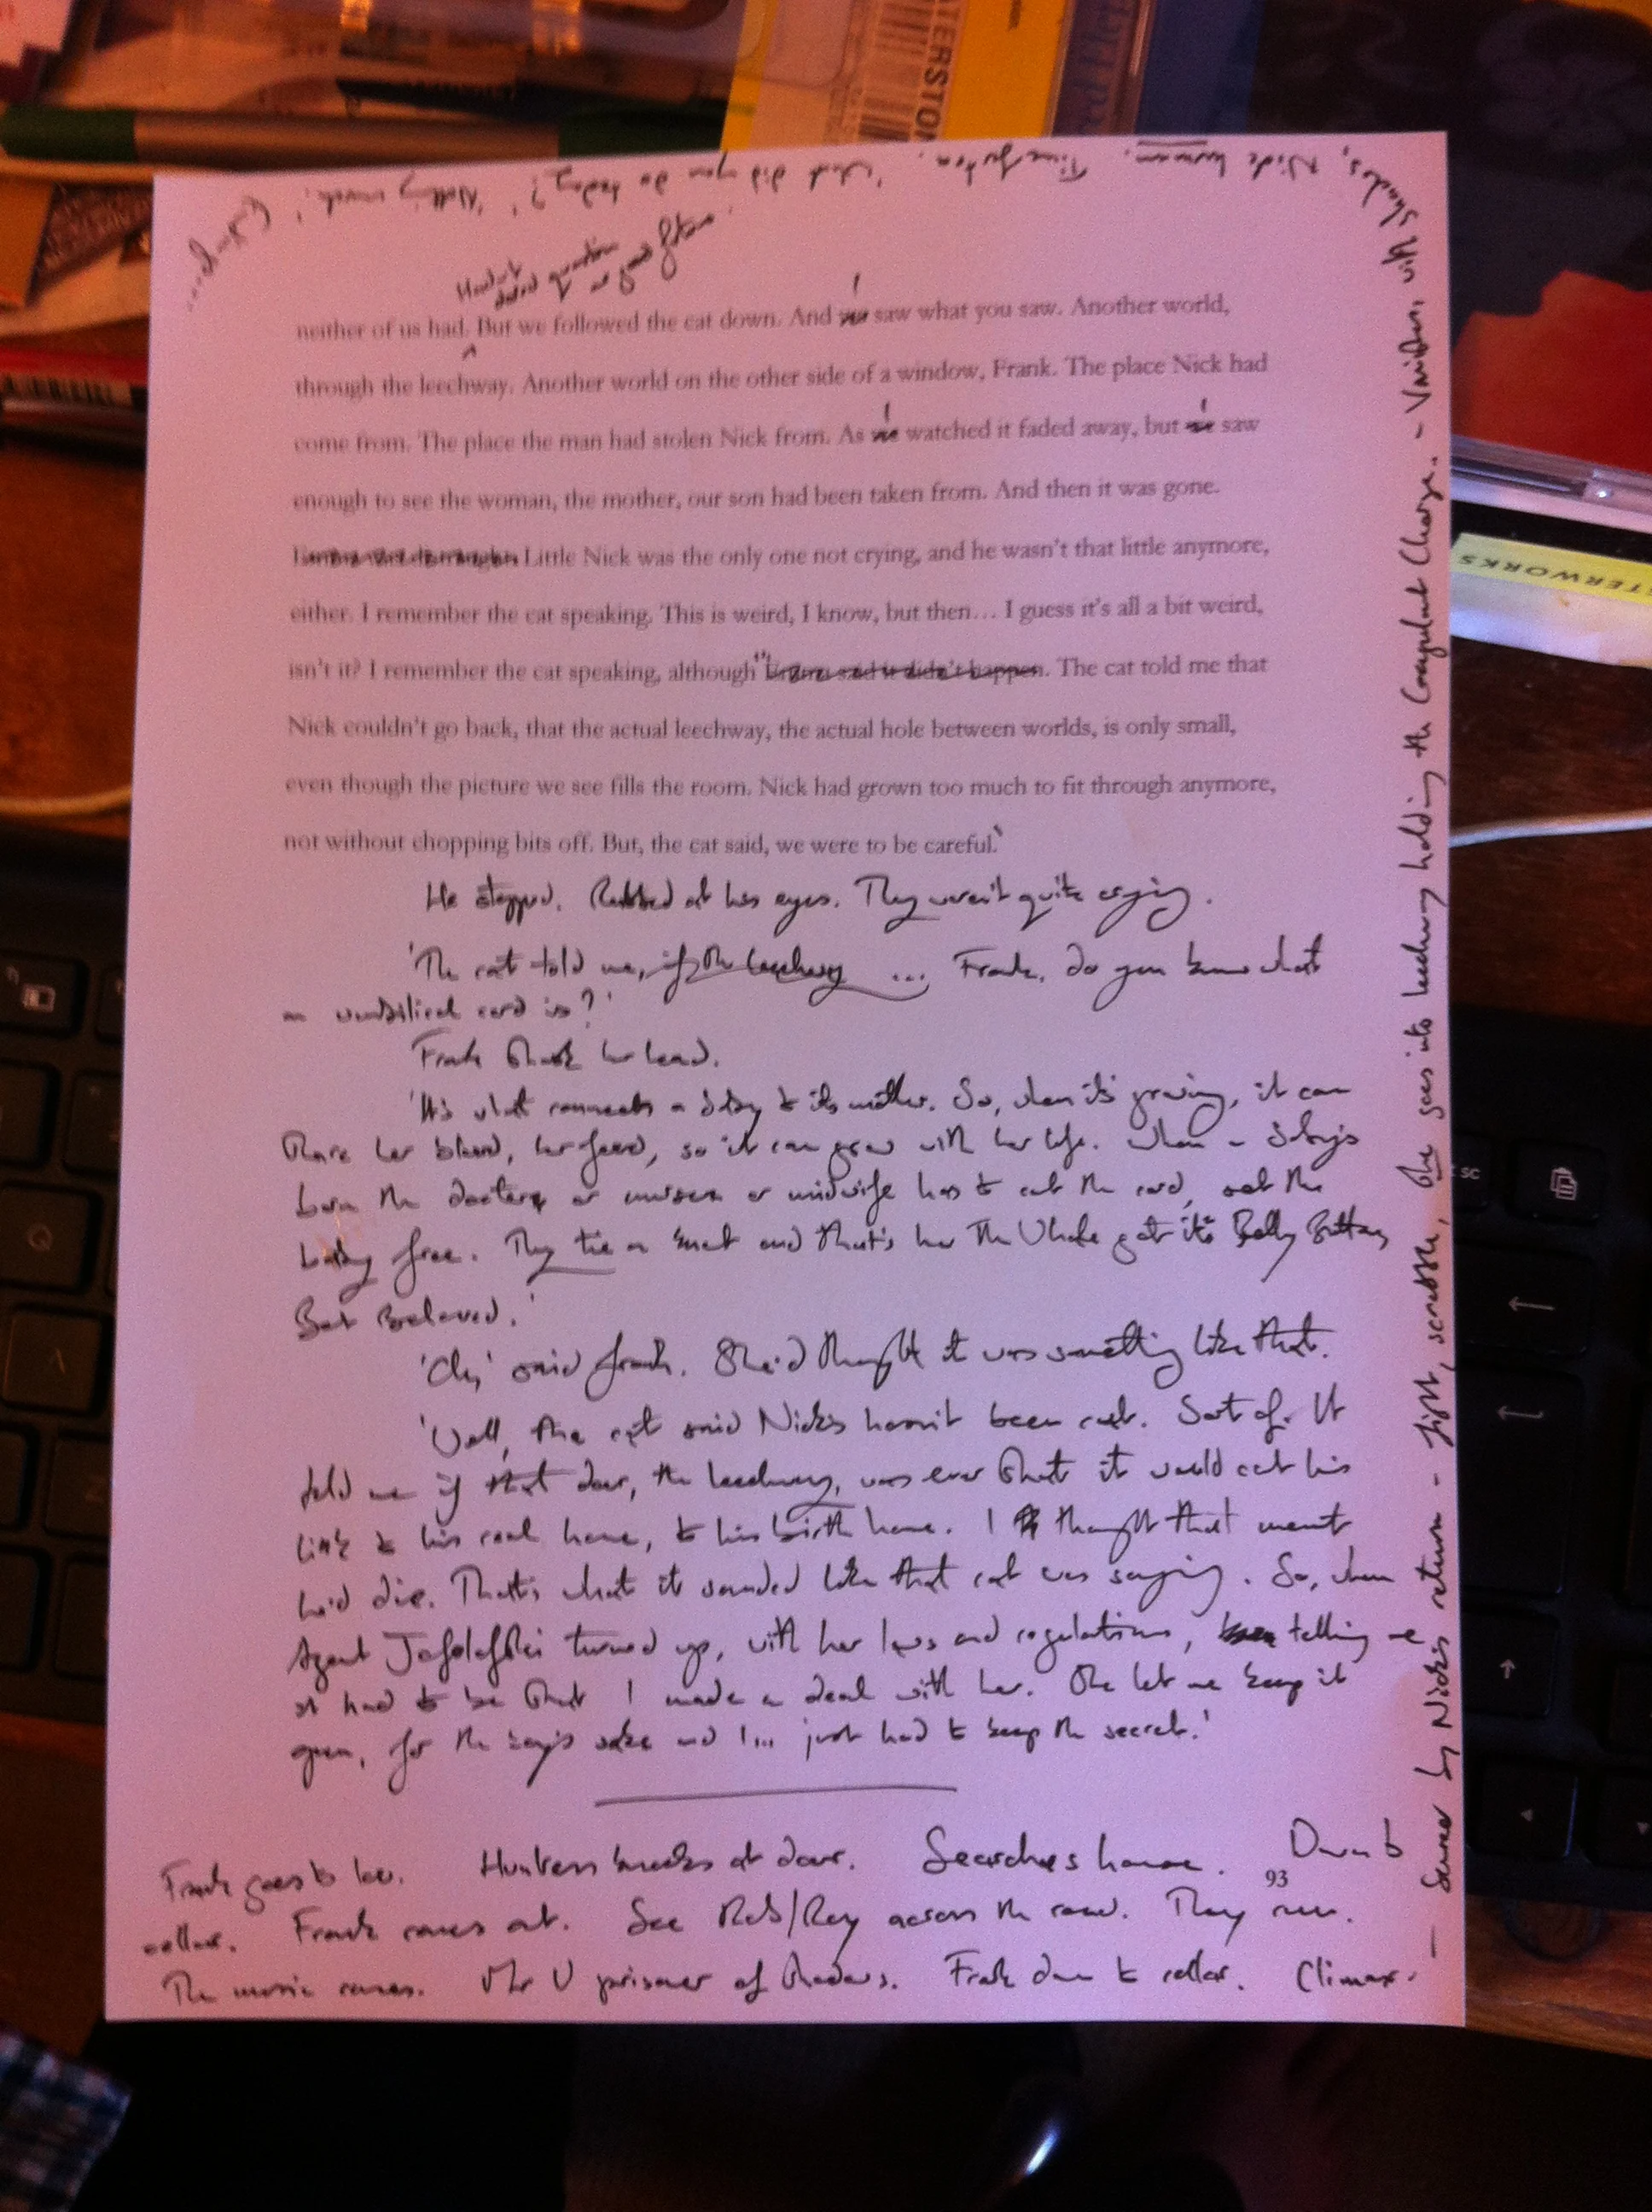 neither of us had. But we followed the cat down. And I saw what you saw. Another world,
through the leechway. Another world on the other side of a window, Frank. The place Nick had
come from. The place the man had stolen Nick from. As I watched it faded away, but I saw
enough to see the woman, the mother, our son had been taken from. And then it was gone.
Little Nick was the only one not crying, and he wasn't that little anymore,
either. I remember the cat speaking. This is weird, I know, but then… I guess it's all a bit weird,
isn't it? I remember the cat speaking, although ... The cat told me that
Nick couldn't go back, that the actual leechway, the actual hole between worlds, is only small,
even though the picture we see fills the room. Nick had grown too much to fit through anymore,
not without chopping bits off. But, the cat said, we were to be careful.'
He stopped. Rubbed at his eyes. They weren't quite crying.
'The cat told me, if the leechway ... Frank, do you know what
an umbilical cord is?'
Frank shook her head.
'It's what connects a baby to its mother. So, when it's growing, it can
share her blood, her food, so it can grow with her life. When a baby's
born the doctor or nurses or midwife has to cut the cord, set the
baby free. They tie a knot and that's how The Whale got its Belly Button,
Best Beloved.'
'Oh,' said Frank. She'd thought it was something like that.
'Well, the cat said Nick's hasn't been cut. Sort of. It
told me if that door, the leechway, was ever shut it would cut his
link to his real home, to his birth home. I thought that meant
he'd die. That's what it sounded like that cat was saying. So, when
Agent turned up, with her laws and regulations, telling me
it had to be shut I made a deal with her. She let me keep it
open, for the boy's sake and I... just had to keep the secret.'
Frank goes to loo. Huntress knocks at door. Searches house. Down to
93
cellar. Frank comes out. See Rob/Roy across the road. They run.
The music comes. Mr V prisoner of shadows. Frank down to cellar. Climax.
— Saved by Nick's return - fight, scrabble, she goes into leechway holding the Coagulant Charge. - Vanishes, with shadows, Nick human. Time for tea. 'What did you do today?' 'Nothing much.'
ATERSTON
TERWORKS
Q
esc